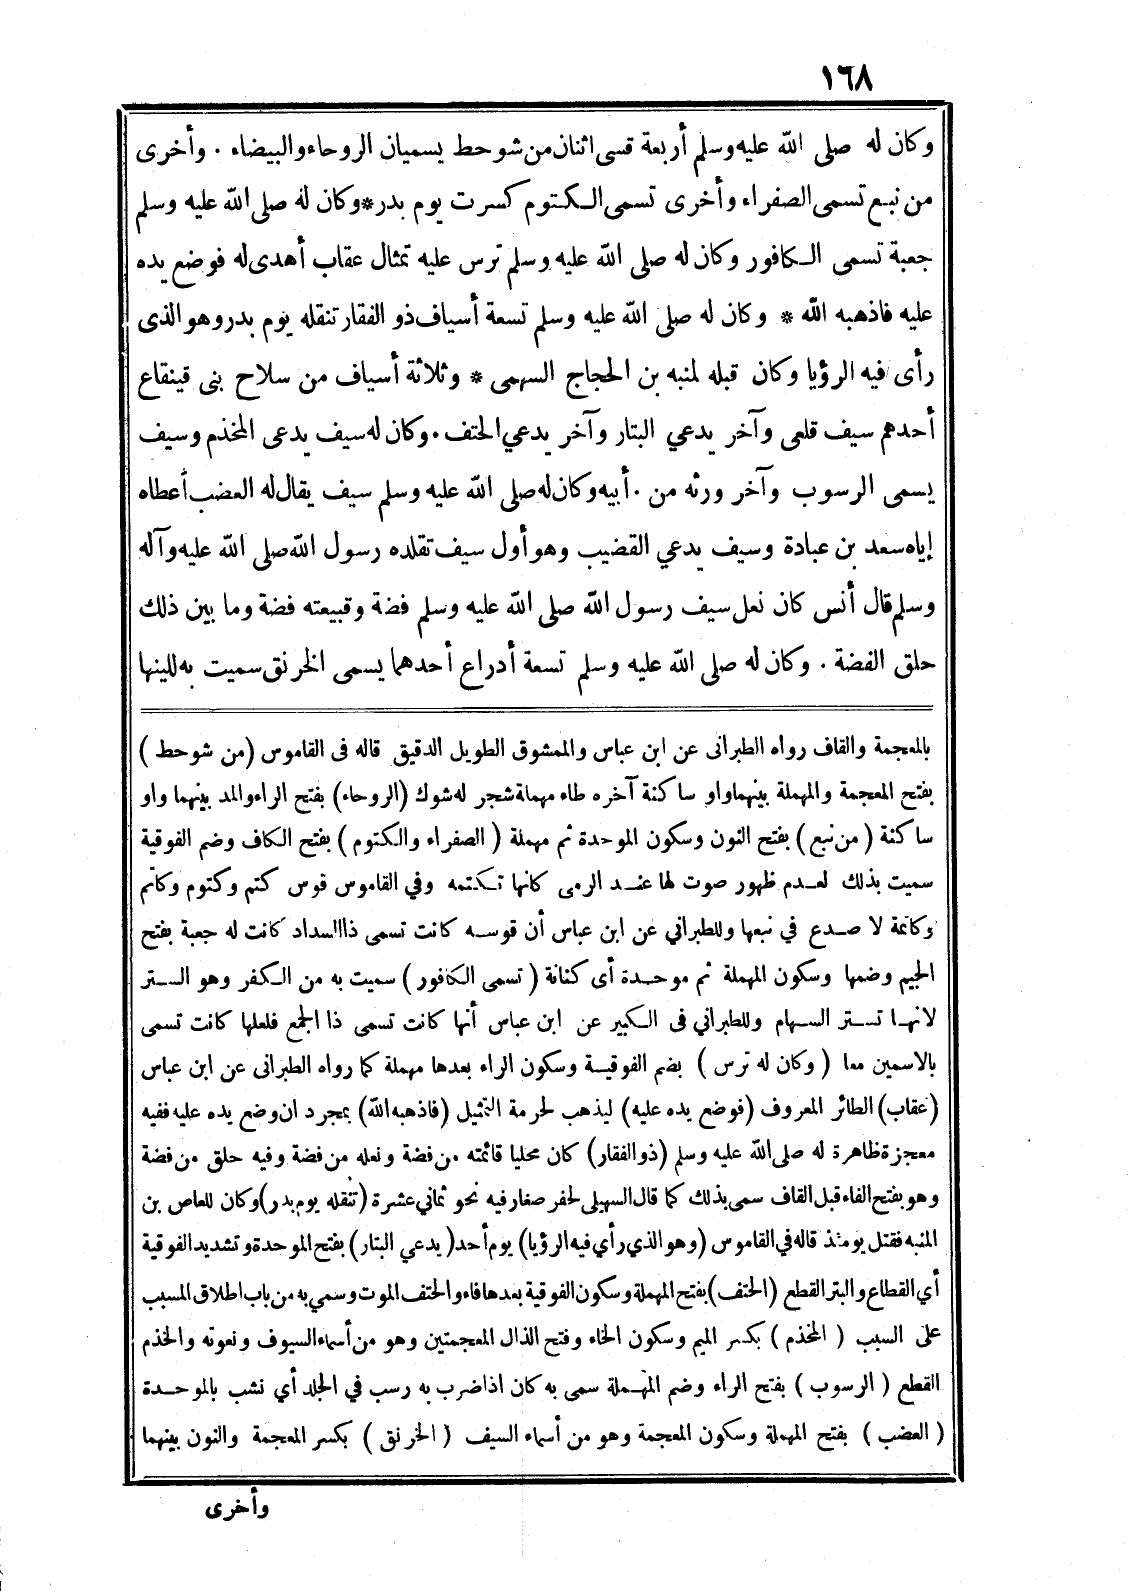 ١٦٨
وكان له صلى الله عليه وسلم أربعة قسى اثنان من شوحط يسميان الروحاء والبيضاء . وأخرى
من نبع تسمى الصفراء وأخرى تسمى الكتوم كسرت يوم بدر * وكان له صلى الله عليه وسلم
جعبة تسمى الكافور وكان له صلى الله عليه وسلم ترس عليه تمثال عقاب أهدى له فوضع يده
عليه فاذهبه الله * وكان له صلى الله عليه وسلم تسعة أسياف ذو الفقار تنقله يوم بدر وهو الذى
رأى فيه الرؤيا وكان قبله لمنبه بن الحجاج السهمى * وثلاثة أسياف من سلاح بنى قينقاع
أحدهم سيف قلعى وآخر يدعي البتار وآخر يدعي الحتف . وكان له سيف يدعى المخذم وسيف
يسمى الرسوب وآخر ورثه من . أبيه وكان له صلى الله عليه وسلم سيف يقال له العضب أعطاه
إياه سعد بن عبادة وسيف يدعي القضيب وهو أول سيف تقلده رسول الله صلى الله عليه وآله
وسلم قال أنس كان نعل سيف رسول الله صلى الله عليه وسلم فضة وقبيعته فضة وما بين ذلك
حلق الفضة . وكان له صلى الله عليه وسلم تسعة أدراع أحدهما يسمى الخرنق سميت به للينها
بالمعجمة والقاف رواه الطبرانى عن ابن عباس والممشوق الطويل الدقيق قاله فى القاموس (من شوحط )
بفتح المعجمة والمهملة بينهما واو ساكنة آخره طاء مهملة شجر له شوك (الروحاء) بفتح الراء والمد بينهما واو
ساكنة ( من نبع ) بفتح النون وسكون الموحدة ثم مهملة ( الصفراء والكتوم ) بفتح الكاف وضم الفوقية
سميت بذلك لعدم ظهور صوت لها عند الرمى كانها تكتمه وفي القاموس قوس كتم وكتوم وكاتم
وكاتمة لا صدع في نبعها وللطبراني عن ابن عباس أن قوسه كانت تسمى ذا السداد كانت له جعبة بفتح
الجيم وضمها وسكون المهملة ثم موحدة أى كنانة ( تسمى الكافور ) سميت به من الكفر وهو الستر
لانها تستر السهام وللطبراني فى الكبير عن ابن عباس أنها كانت تسمى ذا الجمع فلعلها كانت تسمى
بالاسمين معا ( وكان له ترس ) بضم الفوقية وسكون الراء بعدها مهملة كما رواه الطبرانى عن ابن عباس
(عقاب) الطائر المعروف (فوضع يده عليه) ليذهب لحرمة التمثيل (فاذهبه الله) بمجرد ان وضع يده عليه ففيه
معجزة ظاهرة له صلى الله عليه وسلم (ذو الفقار) كان محليا قائمته من فضة ونعله من فضة وفيه حلق من فضة
وهو بفتح الفاء قبل القاف سمى بذلك كما قال السهيلى لحفر صغار فيه نحو ثماني عشرة (تنقله يوم بدر) وكان للعاص بن
المنبه فقتل يومئذ قاله في القاموس (وهو الذي رأي فيه الرؤيا) يوم أحد (يدعي البتار) بفتح الموحدة وتشديد الفوقية
أي القطاع والبتر القطع (الحتف) بفتح المهملة وسكون الفوقية بعدها فاء والحتف الموت وسمي به من باب اطلاق المسبب
على السبب ( المخذم ) بكسر الميم وسكون الخاء وفتح الذال المعجمتين وهو من أسماء السيوف ونعوته والخذم
القطع ( الرسوب ) بفتح الراء وضم المهملة سمى به كان اذا ضرب به رسب في الجلد أي نشب بالموحدة
( العضب ) بفتح المهملة وسكون المعجمة وهو من أسماء السيف ( الخرنق ) بكسر المعجمة والنون بينهما
وأخرى